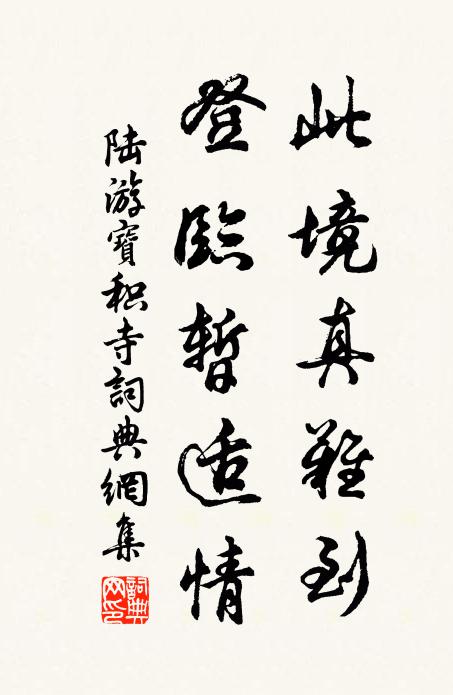 此境真難到
登臨暫适情
陆游寶积寺詞典網集
詞典网印